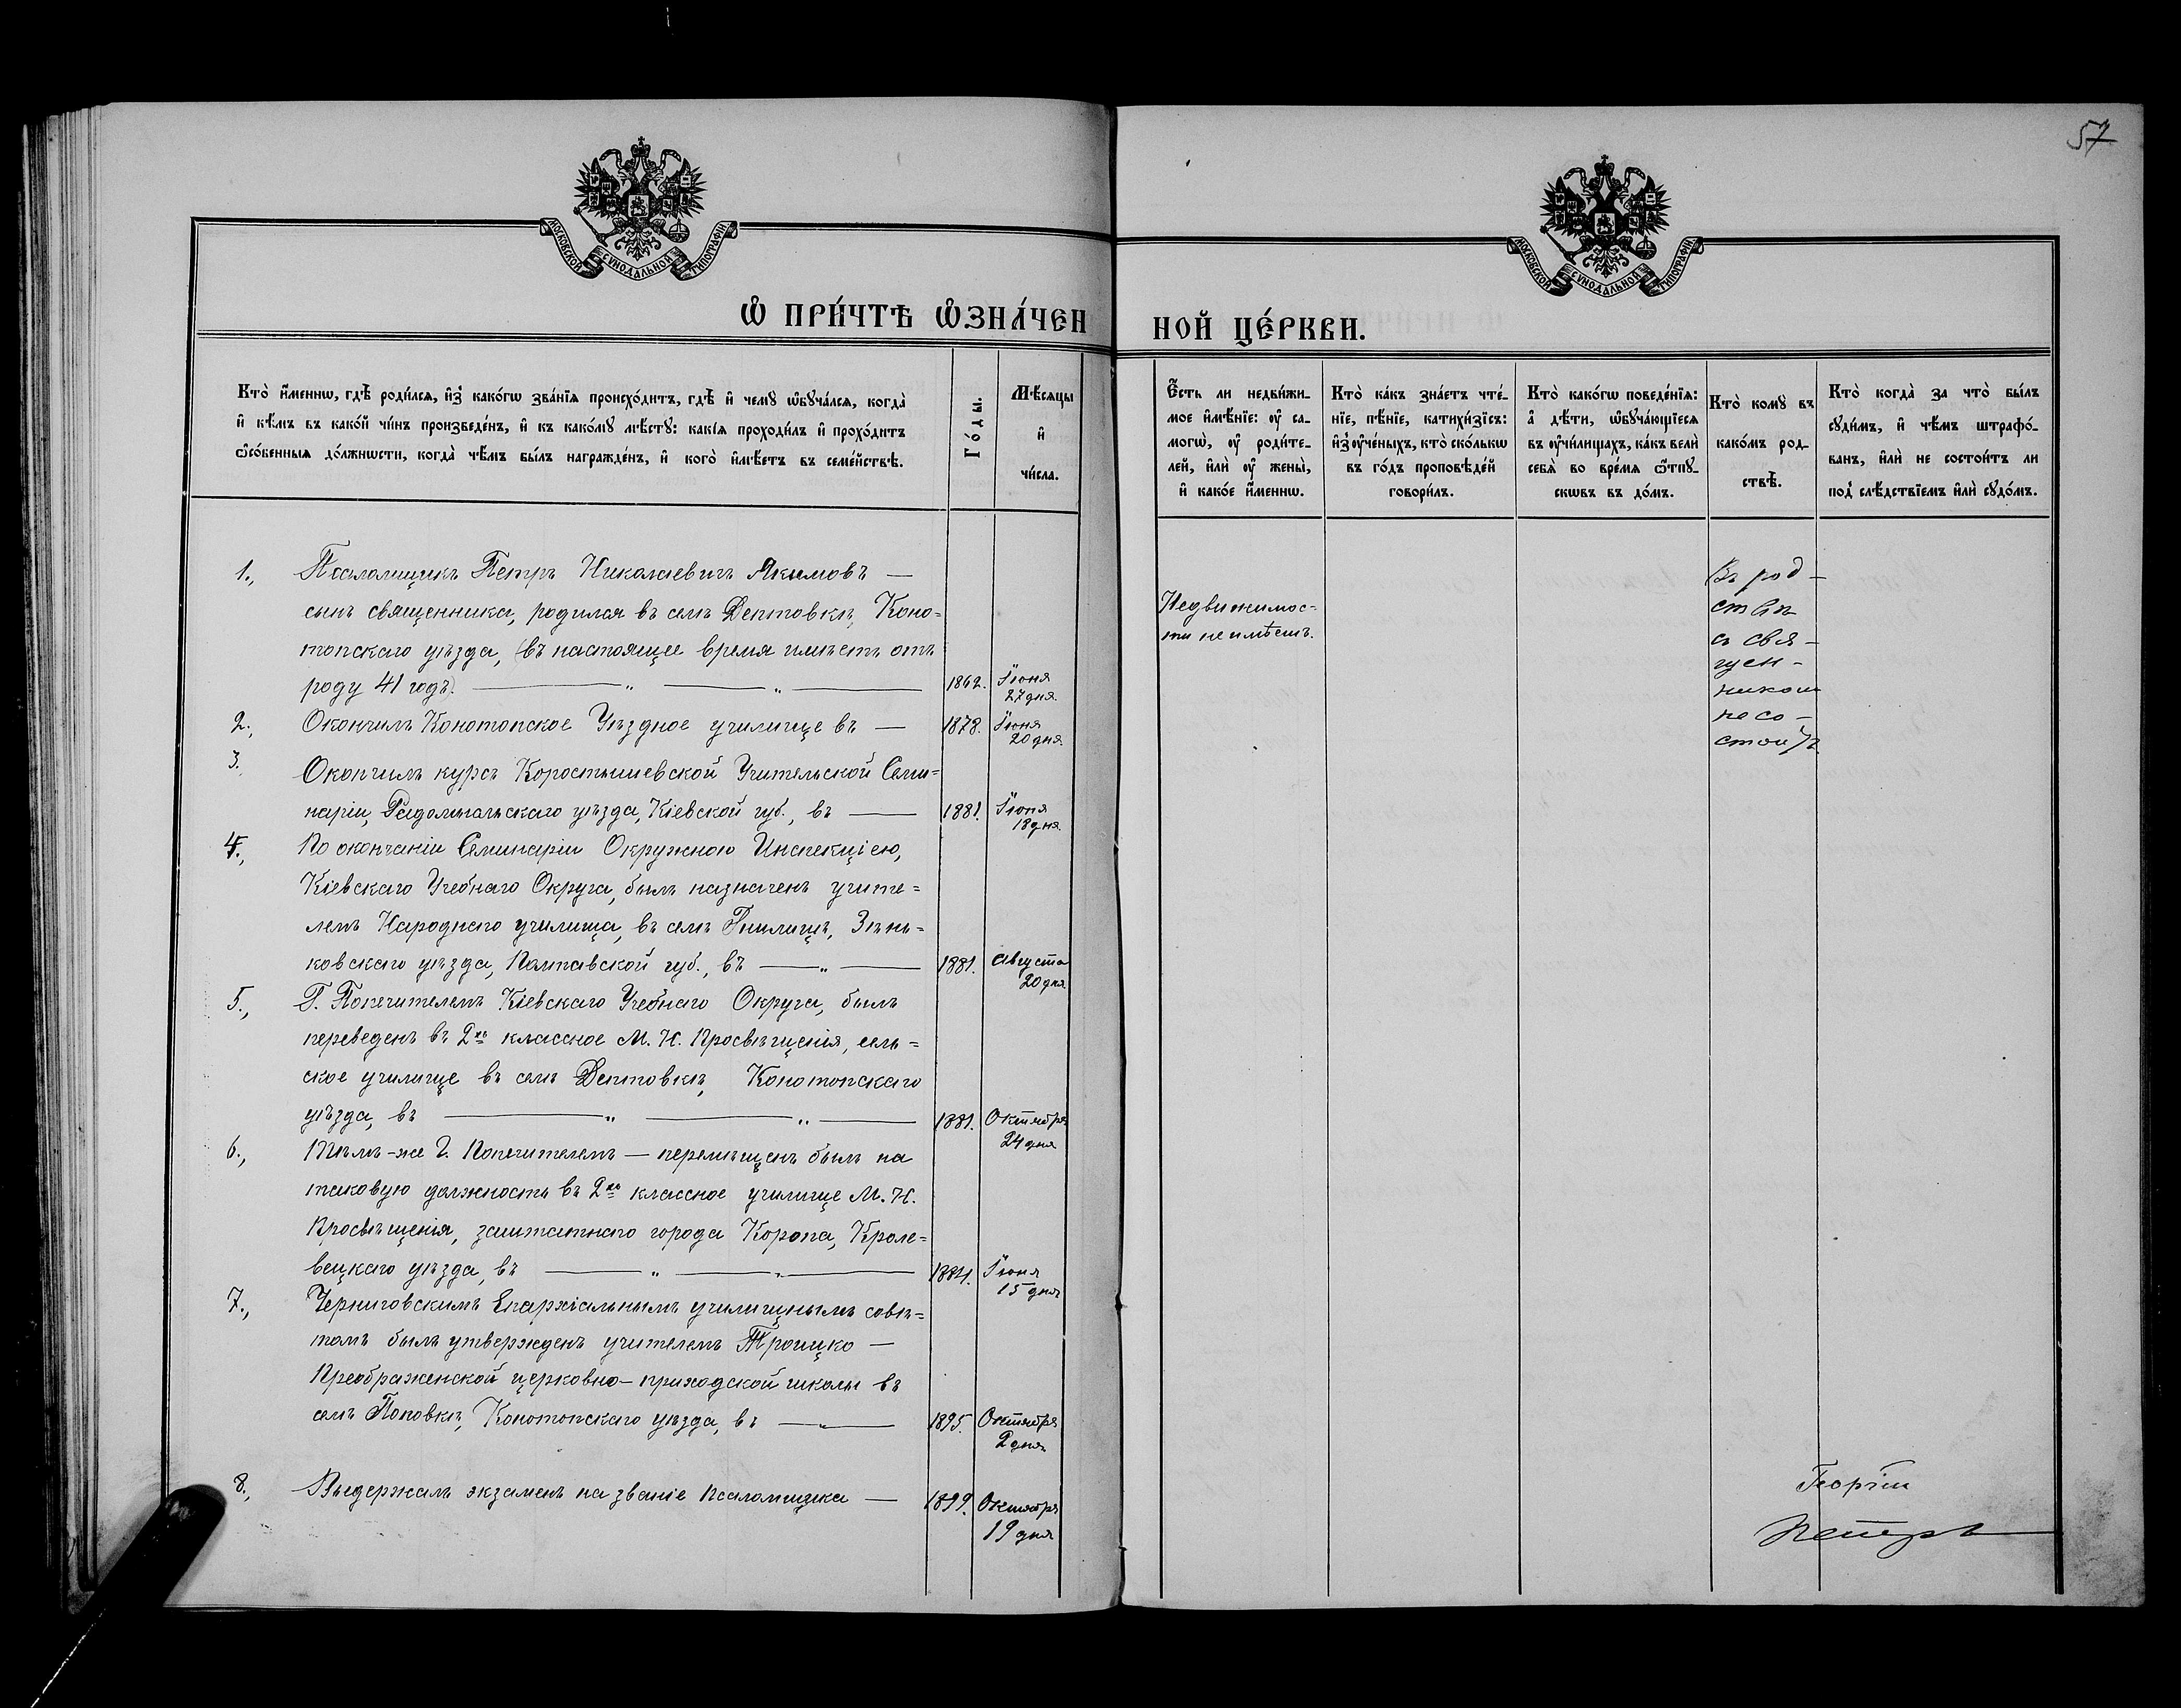 57
МОСКОВСКОЙ СѴНОДАЛЬНОЙ ТИПОГРАФІИ
МОСКОВСКОЙ СѴНОДАЛЬНОЙ ТИПОГРАФІИ
Ѽ ПРИ́ЧТѢ Ѽ҆ЗНА́ЧЕН
НОЙ ЦЕ́РКВИ.
Кто̀ и҆́меннѡ, гдѣ̀ роди́лся, и҆з̾ како́гѡ зва́нїя происхо́дитъ, гдѣ̀ и҆ чемꙋ̀ ѡ҆бꙋча́лся, когда̀
и҆ кѣ́мъ въ како́й чи́нъ произведе́нъ, и҆ къ како́мꙋ мѣ́стꙋ: какі́я проходи́лъ и҆ прохо́дитъ
ѻ҆со́бенныя до́лжнѡсти, когда̀ чѣ́мъ бы́лъ награжде́нъ, и҆ кого̀ и҆мѣ́етъ въ семе́йствѣ.
Го́ды.
Мѣ́сяцы
и҆
чи́сла.
Є҆́сть ли недви́жи-
мое и҆мѣ́нїе: ᲂу҆ са-
могѡ̀, ᲂу҆ роди́те-
лей, и҆лѝ ᲂу҆ жены̀,
и҆ како́е и҆́меннѡ.
Кто̀ ка́къ зна́етъ чте́-
нїе, пѣ́нїе, катихи́зїсъ:
и҆з̾ ᲂу҆че́ныхъ, кто̀ ско́лькѡ
въ го́дъ проповѣ́дей
говори́лъ.
Кто̀ како́гѡ поведе́нїя:
а҆ дѣ́ти, ѡ҆бꙋча́ющїеся
въ ᲂу҆чи́лищахъ, ка́къ велѝ
себя̀ во вре́мя ѿпꙋ-
скѡвъ въ до́мъ.
Кто̀ комꙋ̀ въ
како́мъ род-
ствѣ̀.
Кто̀ когда̀ за что̀ бы́лъ
сꙋди́мъ, и҆ чѣ́мъ штрафо́-
ванъ, и҆лѝ не состои́тъ ли
под̾ слѣ́дствїемъ и҆лѝ сꙋдо́мъ.
1., Псаломщикъ Петръ Николаевичъ Якимовъ —
сынъ священника, родился въ селѣ Дептовкѣ, Коно=
топскаго уѣзда, (въ настоящее время имѣетъ отъ
роду 41 годъ). — „ — „ — 1862. Іюня
27 дня.
2., Окончилъ Конотопское Уѣздное училище въ — 1878. Іюня
20 дня.
3. Окончилъ курсъ Коростышевской Учительской Семи=
наріи, Радомысльскаго уѣзда, Кіевской губ., въ — 1881. Іюня
18 дня.
4., По окончаніи Семинаріи Окружною Инспекціею,
Кіевскаго Учебнаго Округа, былъ назначенъ учите=
лемъ Народнаго училища, въ селѣ Гнилицѣ, Зѣнь=
ковскаго уѣзда, Полтавской губ., въ — „ — 1881. Августа
20 дня.
5., Г. Попечителемъ Кіевскаго Учебнаго Округа, былъ
переведенъ въ 2хъ классное М. Н. Просвѣщенія, сель=
ское училище въ селѣ Дептовкѣ, Конотопскаго
уѣзда, въ — „ — „ — 1881. Октября
24 дня
6., Тѣмъ-же Г. Попечителемъ — перемѣщенъ былъ на
таковую должность въ 2хъ классное училище М. Н.
Просвѣщенія, заштатнаго города Коропа, Кроле=
вецкаго уѣзда, въ — „ — „ — 1884. Іюня
15 дня
7., Черниговскимъ Епархіальнымъ училищнымъ совѣ=
томъ былъ утвержденъ учителемъ Троицко —
Преображенской церковно-приходской школы въ
селѣ Поповкѣ, Конотопскаго уѣзда, въ — „ — 1895. Октября
2 дня
8., Выдержалъ экзаменъ на званіе псаломщика — 1899. Октября
19 дня
Недвижимос=
ти не имѣетъ.
Въ род-
ствѣ
съ свя-
щен-
ником
не со-
стоитъ
Георгій
Петръ